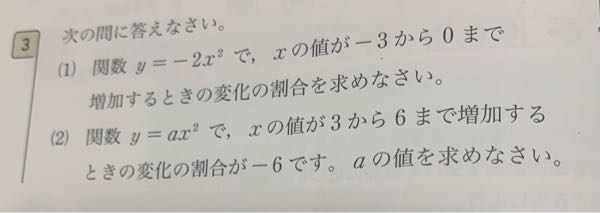 3 次の問に答えなさい。
(1) 関数 y=-2x² で，xの値が-3から0まで
増加するときの変化の割合を求めなさい。
(2) 関数 y=ax² で，xの値が3から6まで増加する
ときの変化の割合が-6です。aの値を求めなさい。